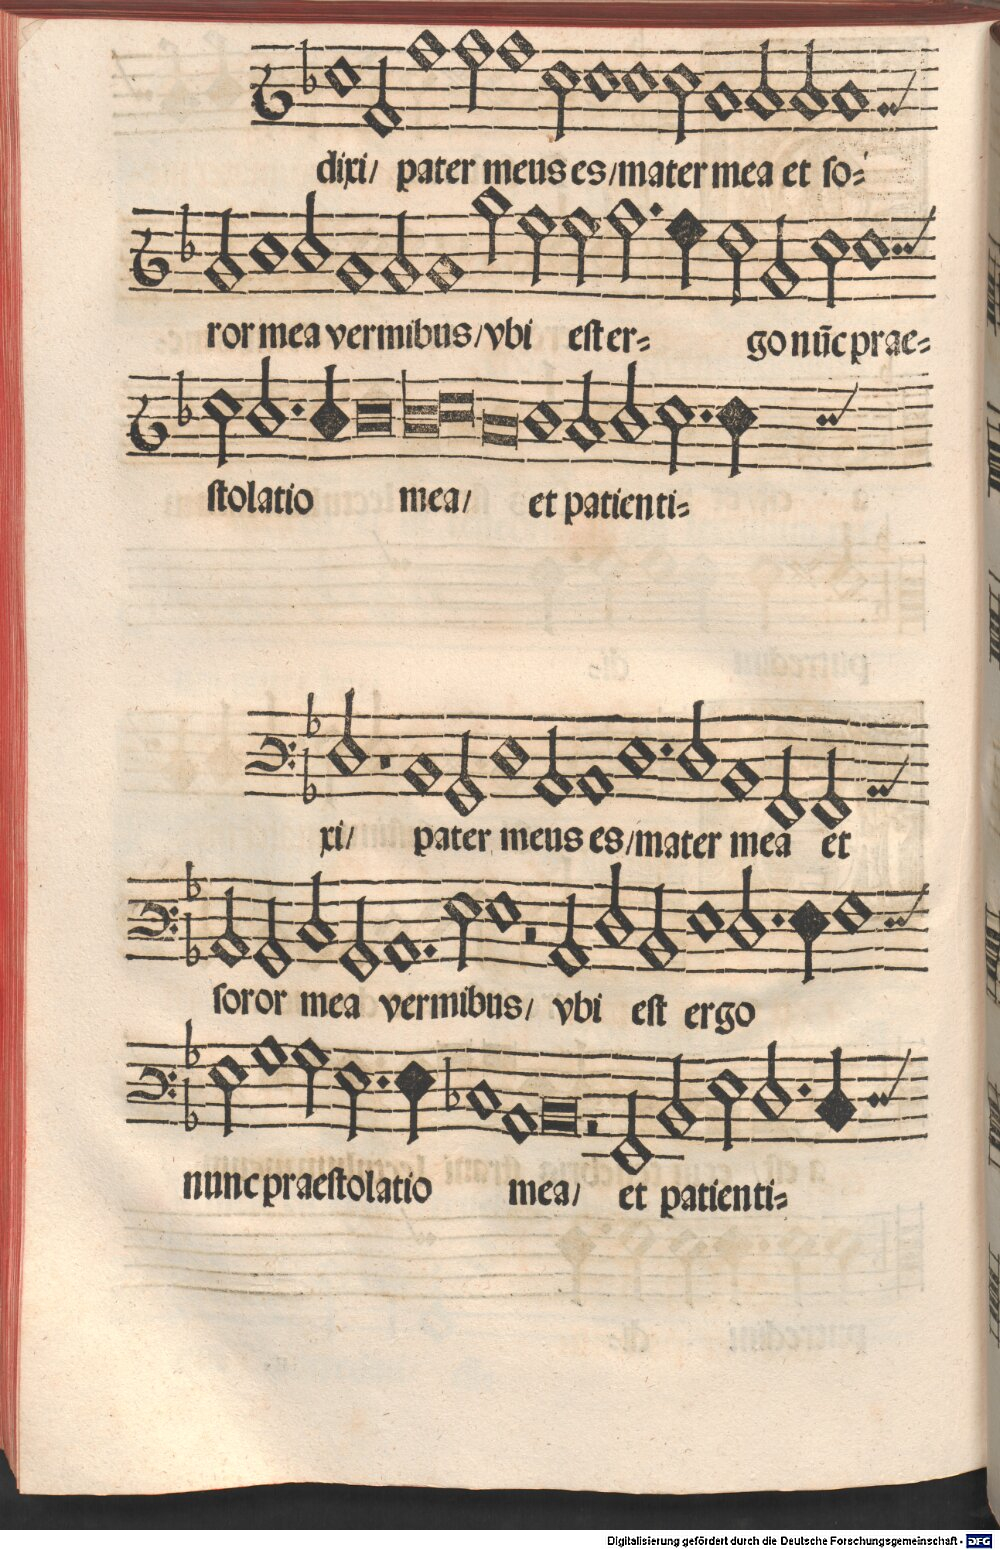 dixi/ pater meus es/mater mea et so⸗
ror mea vermibus/vbi est er⸗ go nūc prae⸗
stolatio mea/ et patienti⸗
xi/ pater meus es/mater mea et
soror mea vermibus/ vbi est ergo
nunc praestolatio mea/ et patienti⸗
Digitalisierung gefördert durch die Deutsche Forschungsgemeinschaft - DFG